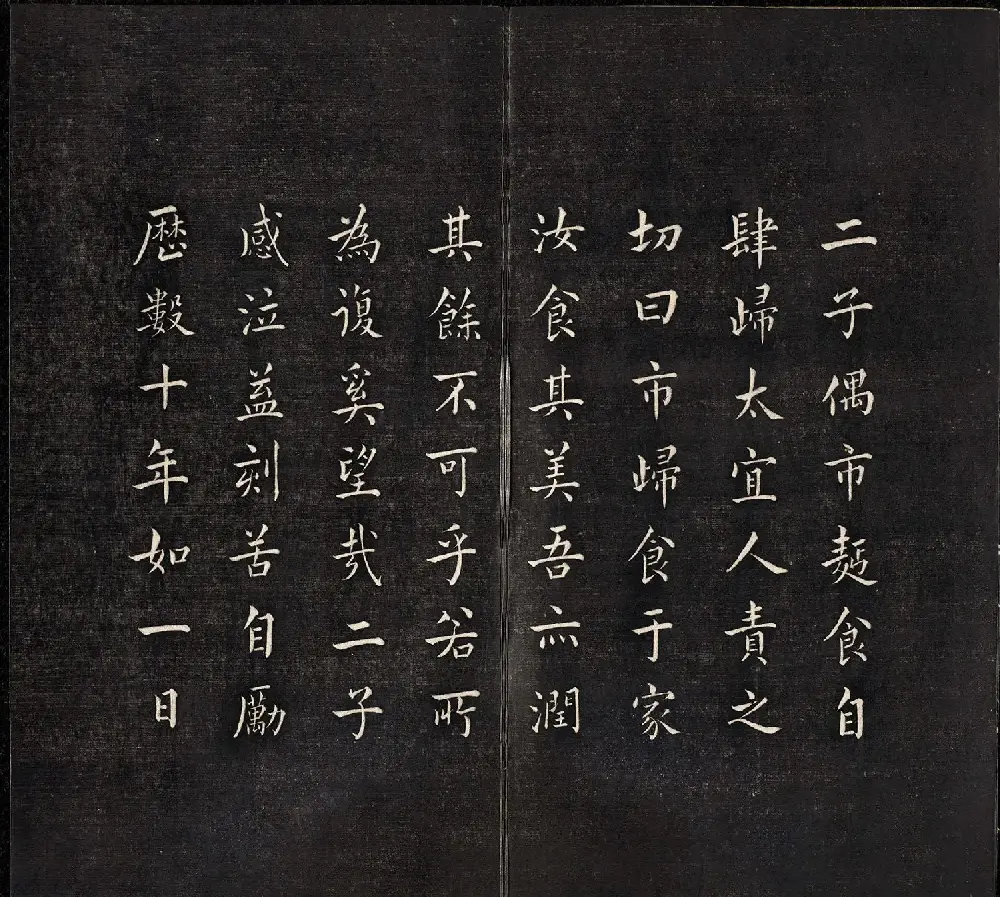 二子偶市麪食自
肆歸太宜人責之
切曰市歸食于家
汝食其美吾亦潤
其餘不可乎若所
為復奚望哉二子
感泣益刻苦自勵
歷數十年如一日